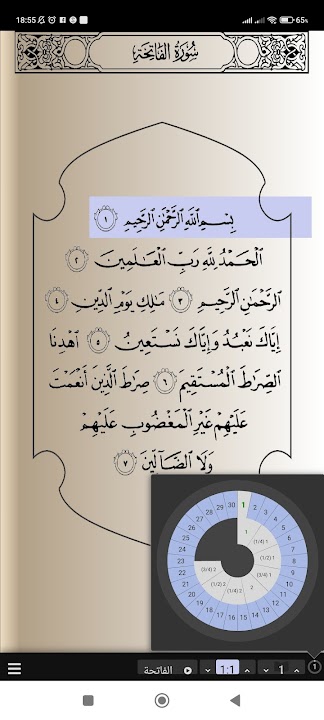 18:55
65%
سُورَةُ الفَاتِحَةِ
بِسْمِ ٱللَّهِ ٱلرَّحْمَٰنِ ٱلرَّحِيمِ ١
ٱلْحَمْدُ لِلَّهِ رَبِّ ٱلْعَٰلَمِينَ ٢
ٱلرَّحْمَٰنِ ٱلرَّحِيمِ ٣ مَٰلِكِ يَوْمِ ٱلدِّينِ ٤
إِيَّاكَ نَعْبُدُ وَإِيَّاكَ نَسْتَعِينُ ٥ ٱهْدِنَا
ٱلصِّرَٰطَ ٱلْمُسْتَقِيمَ ٦ صِرَٰطَ ٱلَّذِينَ أَنْعَمْتَ
عَلَيْهِمْ غَيْرِ ٱلْمَغْضُوبِ عَلَيْهِمْ
وَلَا ٱلضَّآلِّينَ ٧
1 2 3 4 5 6 7 8 9 10 11 12 13 14 15 16 17 18 19 20 21 22 23 24 25 26 27 28 29 30
1
1 (1/4)
1 (1/2)
1 (3/4)
2
2 (1/4)
2 (1/2)
2 (3/4)
الفاتحة
1:1
1
1